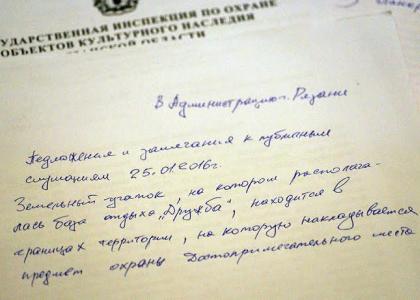 УДАРСТВЕННАЯ ИНСПЕКЦИЯ ПО ОХРАНЕ
ОБЪЕКТОВ КУЛЬТУРНОГО НАСЛЕДИЯ
ОБЛАСТИ
В Администрацию г. Рязани
Предложения и замечания к публичным
слушаниям 25.01.2016г.
Земельный участок, на котором располага-
лась база отдыха "Дружба", находится в
границах территории, на которую накладывается
предмет охраны Достопримечательного места